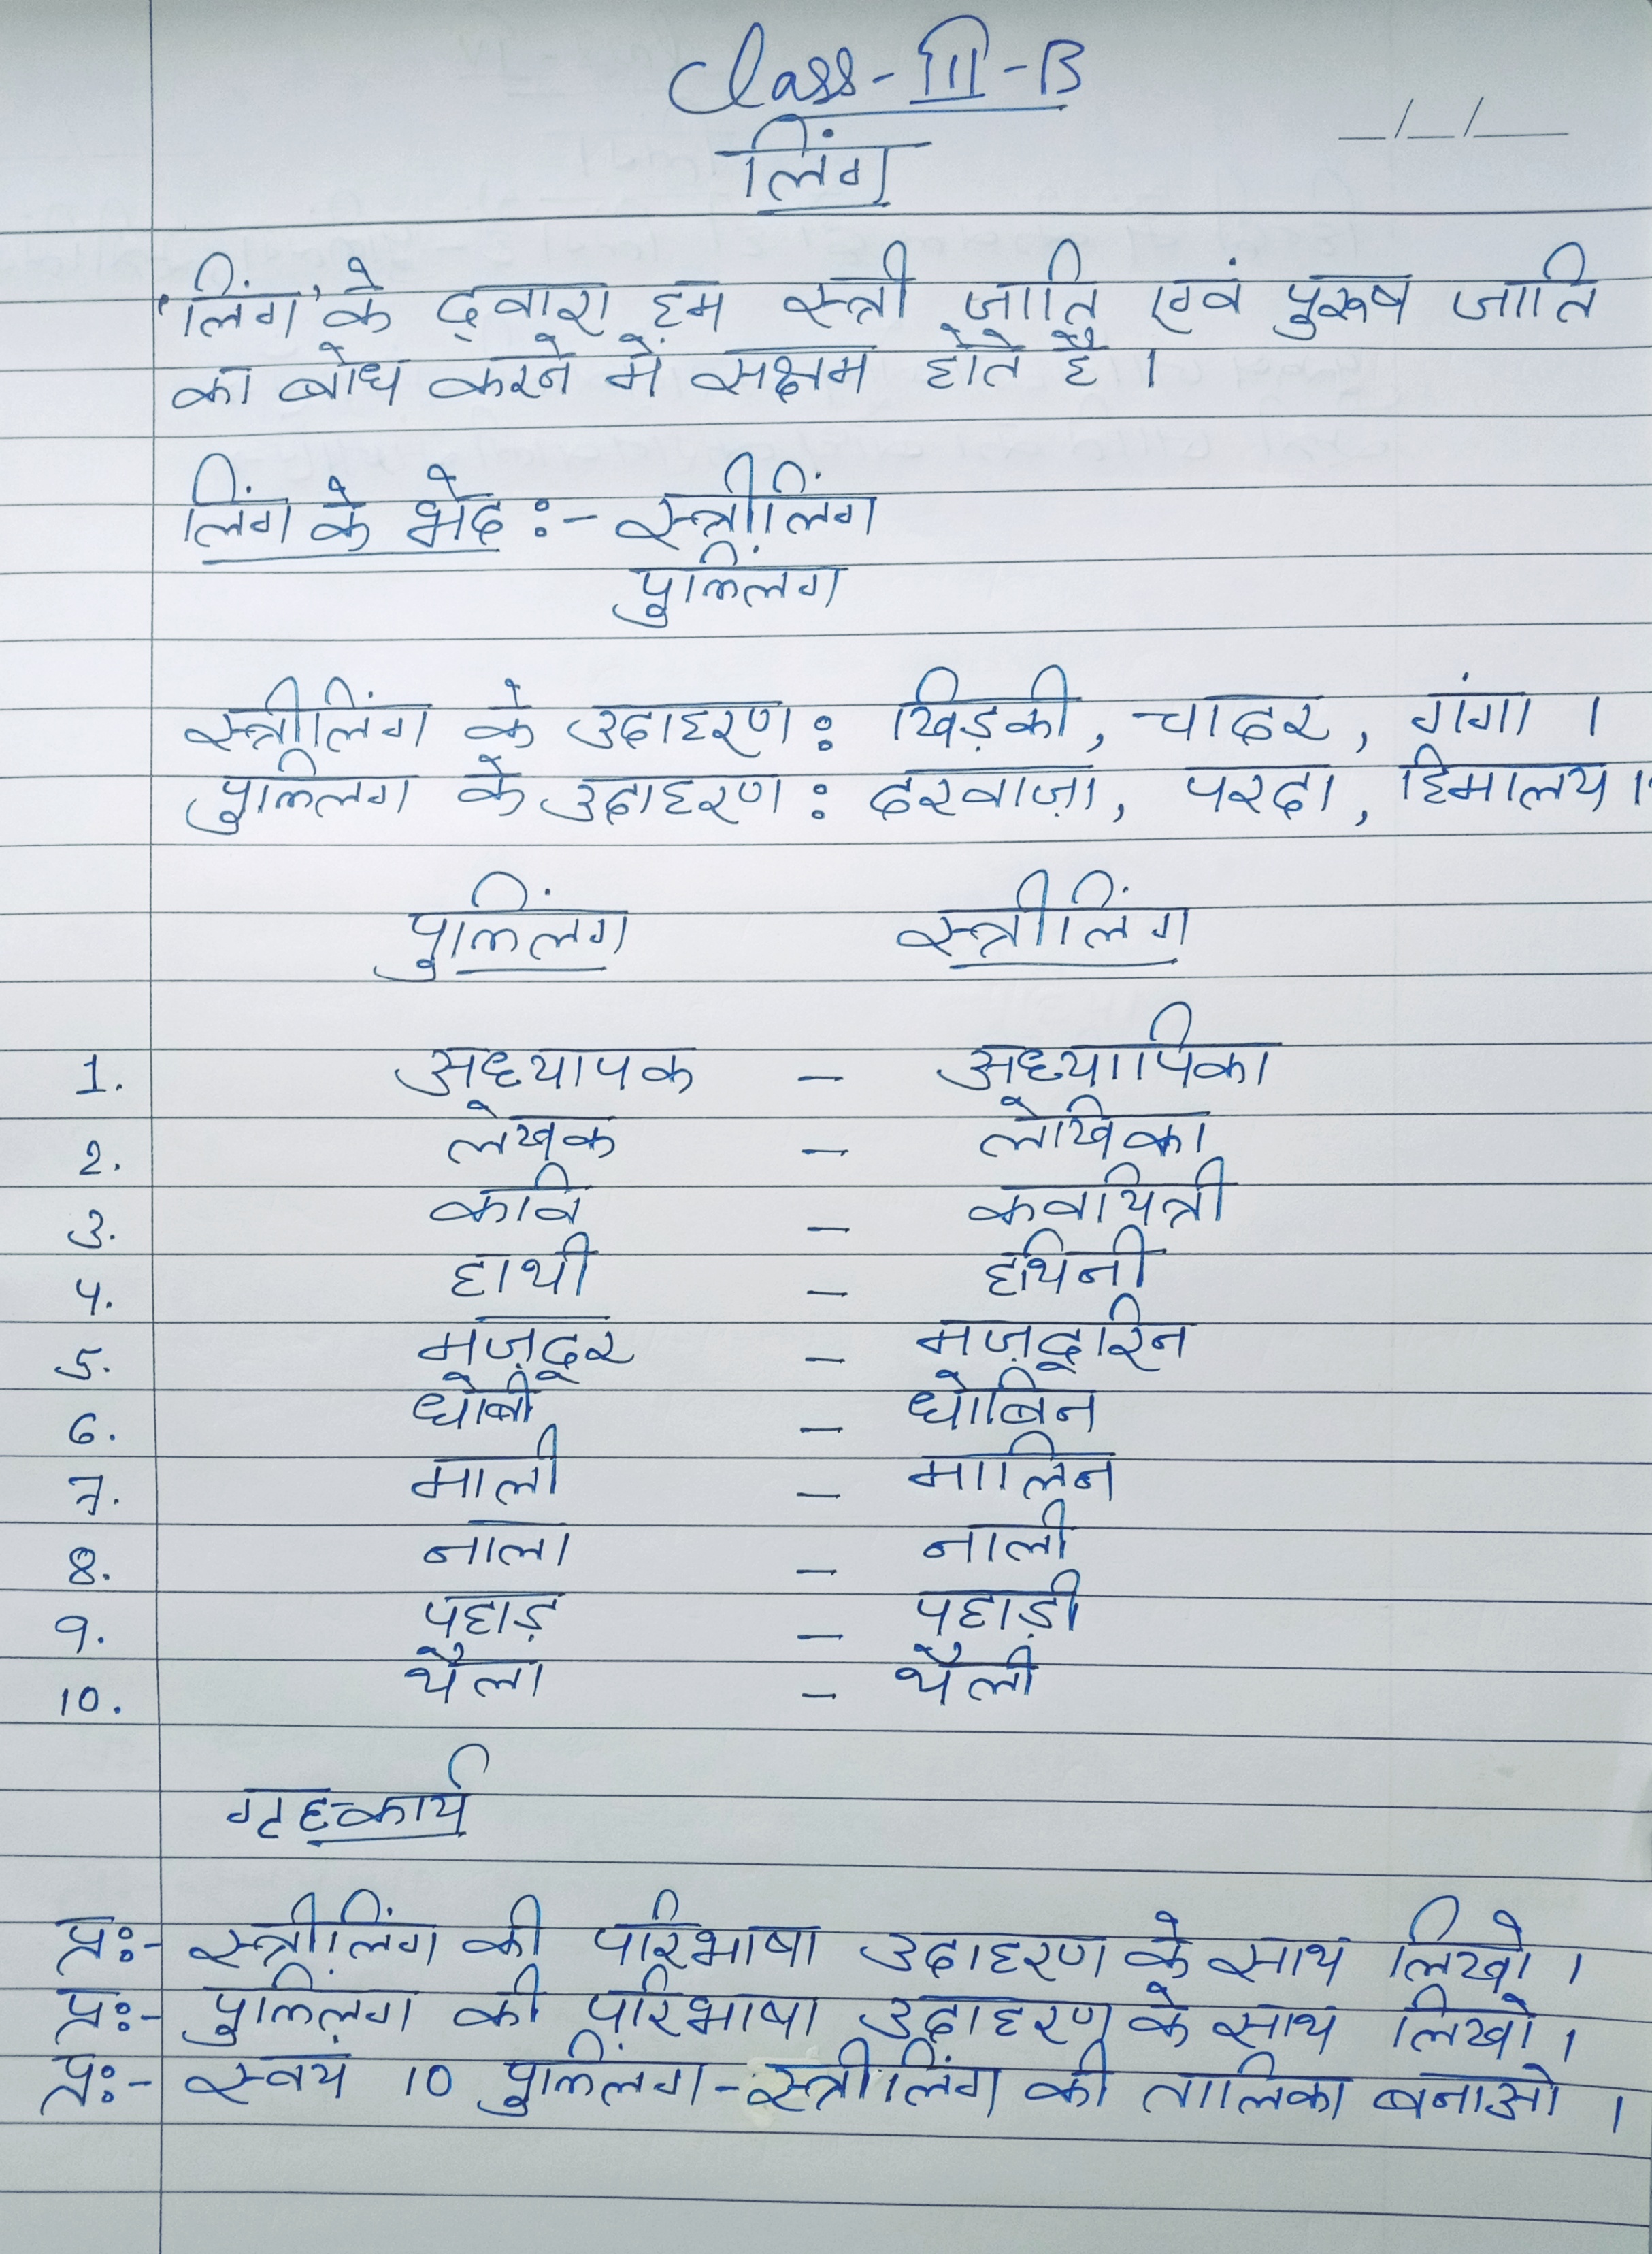 Class-III-B
_/_/__
लिंग
'लिंग' के द्वारा हम स्त्री जाति एवं पुरूष जाति
का बोध करने में सक्षम होते हैं ।
लिंग के भेद :- स्त्रीलिंग
पुल्लिंग
स्त्रीलिंग के उदाहरण : खिड़की, चादर, गंगा ।
पुल्लिंग के उदाहरण : दरवाज़ा, परदा, हिमालय ।
पुल्लिंग स्त्रीलिंग
1. अध्यापक – अध्यापिका
2. लेखक – लेखिका
3. कवि – कवयित्री
4. हाथी – हथिनी
5. मज़दूर – मज़दूरिन
6. धोबी – धोबिन
7. माली – मालिन
8. नाला – नाली
9. पहाड़ – पहाड़ी
10. थैला – थैली
गृहकार्य
प्र:- स्त्रीलिंग की परिभाषा उदाहरण के साथ लिखो ।
प्र:- पुल्लिंग की परिभाषा उदाहरण के साथ लिखो ।
प्र:- स्वयं 10 पुल्लिंग-स्त्रीलिंग की तालिका बनाओ ।